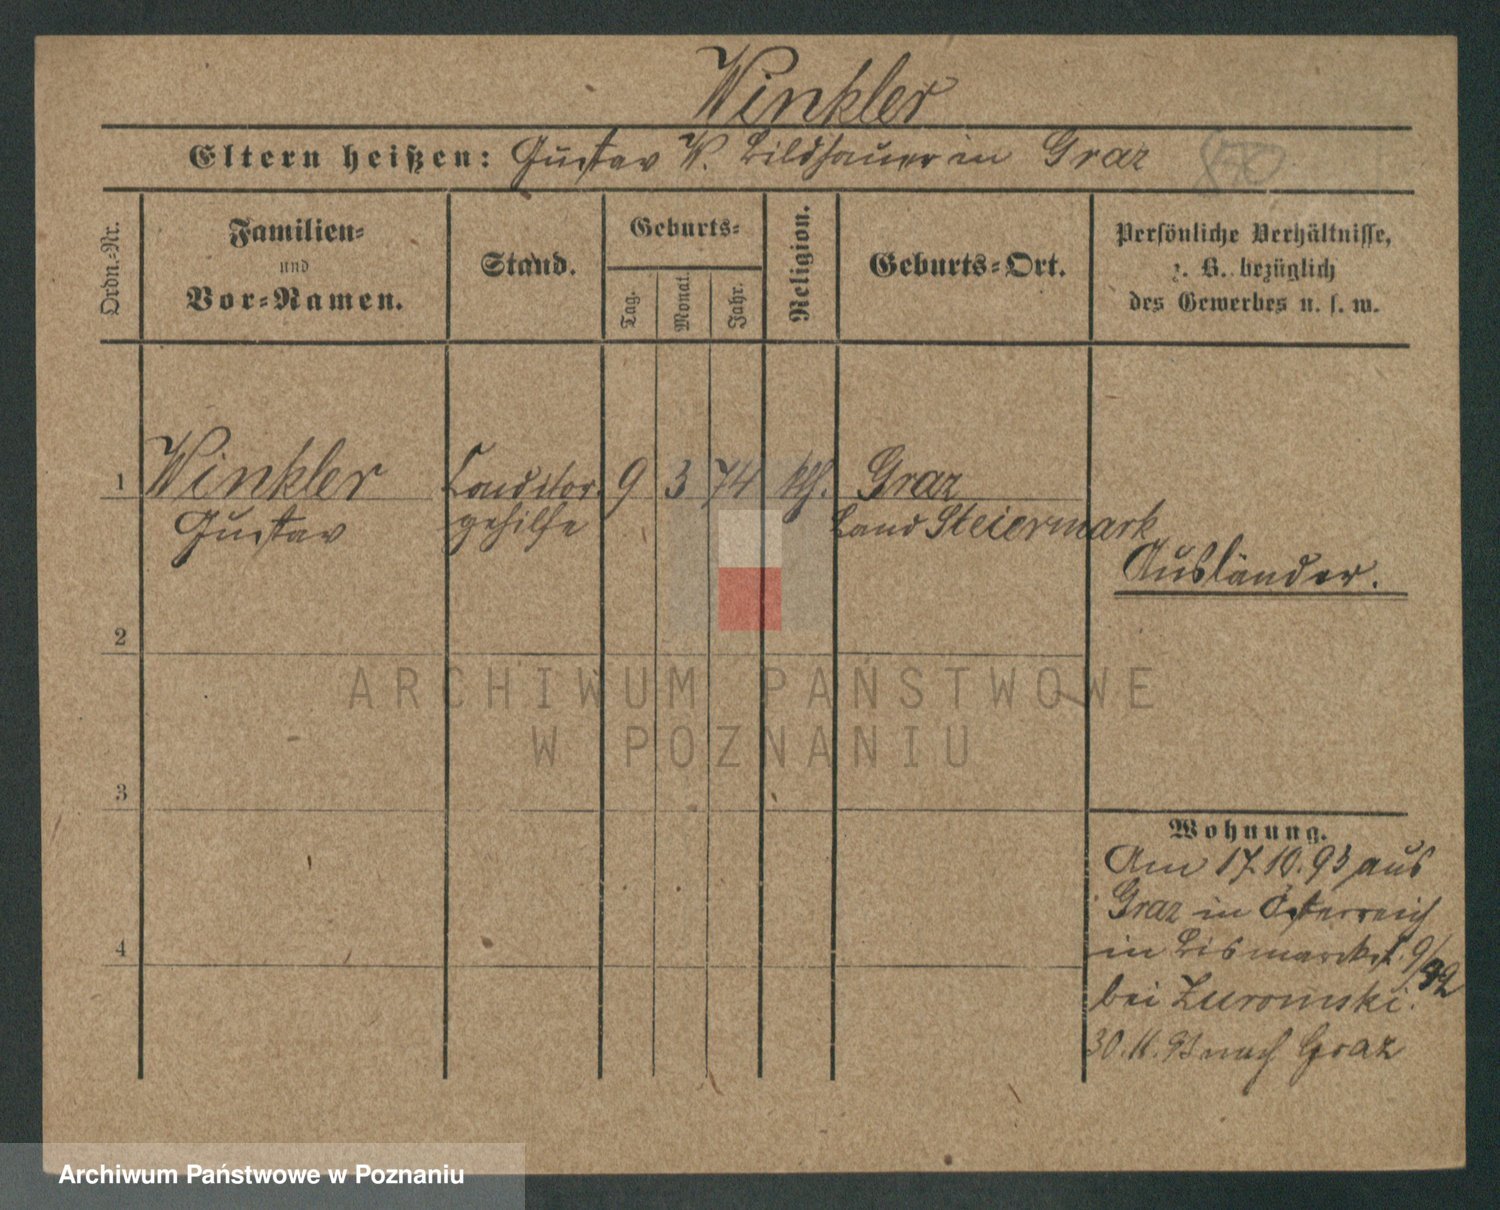 Winkler
Eltern heißen: Gustav W. Bildhauer in Graz
Ordn.-Nr.
Familien-
und
Vor-Namen.
Stand.
Geburts-
Tag.
Monat.
Jahr.
Religion.
Geburts-Ort.
Persönliche Verhältnisse,
z. B. bezüglich
des Gewerbes u. s. w.
1 Winkler Conditor 9 3 74 kth. Graz
Gustav gehilfe Land Steiermark
Ausländer.
2
ARCHIWUM PAŃSTWOWE
W POZNANIU
3
Wohnung.
Am 17.10.93 aus
Graz in Österreich
4
in Bismarckst. 9/
bei Zuromski.
30.11.93 nach Graz
Archiwum Państwowe w Poznaniu